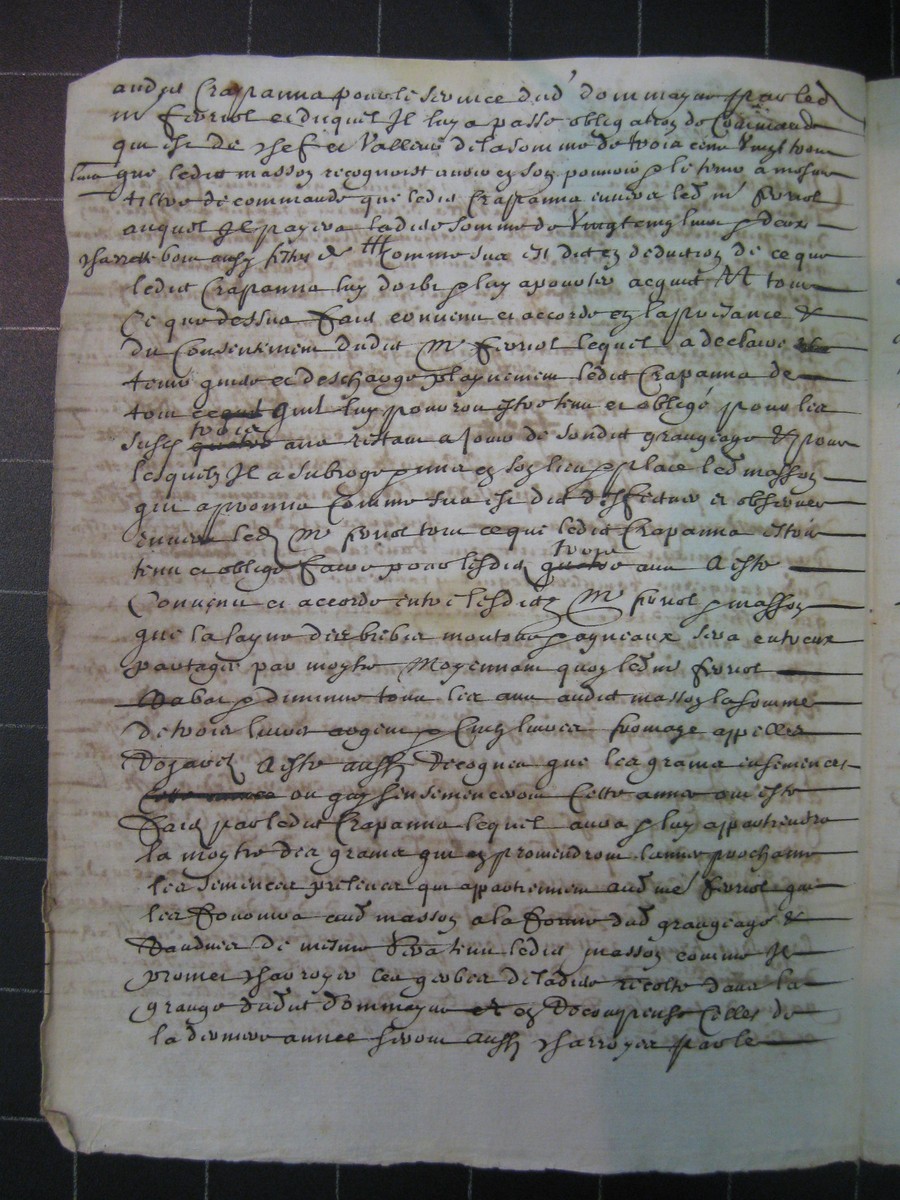 audit Crapanna pour le service dud dommayne par led
mr Fevriol et duquel Il luy a passe obligation de Commande
qui est de chef et Valleur de la somme de trois cens Vingt trois
livres que ledit masson recognoist avoir en son pouvoir le tenir a mesme
tiltre de commande que ledit Crapanna envers led mr Fevriol
auquel Il payera ladite somme de Vingt cinq livres p deux
charrette bonn aussy Comme sus est dit en deduction de ce que
ledit Crapanna luy doibt p luy apporter acquit Et tout
Ce que dessus Fait convenu et accorde en la presance &
du Consentement dudit mr Fevriol lequel a declaire
tenir quitte et descharge playnement ledit Crapanna de
tout ce quil luy pouvoit estre tenu et obligé pour les
susd quatre trois ans restans a fere de sondit grangeage & pour
lesquelz Il a subroge p mis en son lieu p place led masson
qui a promis Comme sus est dit d'effectuer et observer
envers led mr Fevriol tout ce que ledit Crapanna estoit
tenu et obligé Faire pour lesdits quatre trois ans A este
Convenu et accorde entre lesditz mr Fevriol p masson
que la layne des brebis moutons p agneaux sera entreux
partagée par moytie Moyennant quoy led mr Fevriol
Rabat p diminue tous les ans audit masson la somme
de trois livres argent p Cinq livres fromage appelles
A este aussy Recogneu que les grains ensemences
ou quy s'ensemenceront Cette annee ont este
Faitz par ledit Crapanna lequel aura p luy appartiendra
la moytie des grains qui en proviendront l'annee prochaine
les semences prelevees qui appartiennent aud mr Fevriol que
les Fournira aud masson a la Forme dud grangeage &
de mesme sera tenu ledit masson comme Il
promet charroyer les gerbes de ladite recolte dans la
grange dudit dommayne et en Recompense Celles de
la derniere annee seront aussy charroyees par le